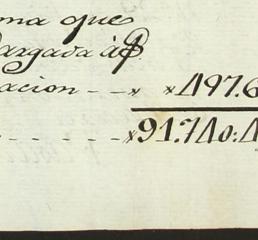 ma que
argada à
acion - - x x 497.6
x 91.740:4